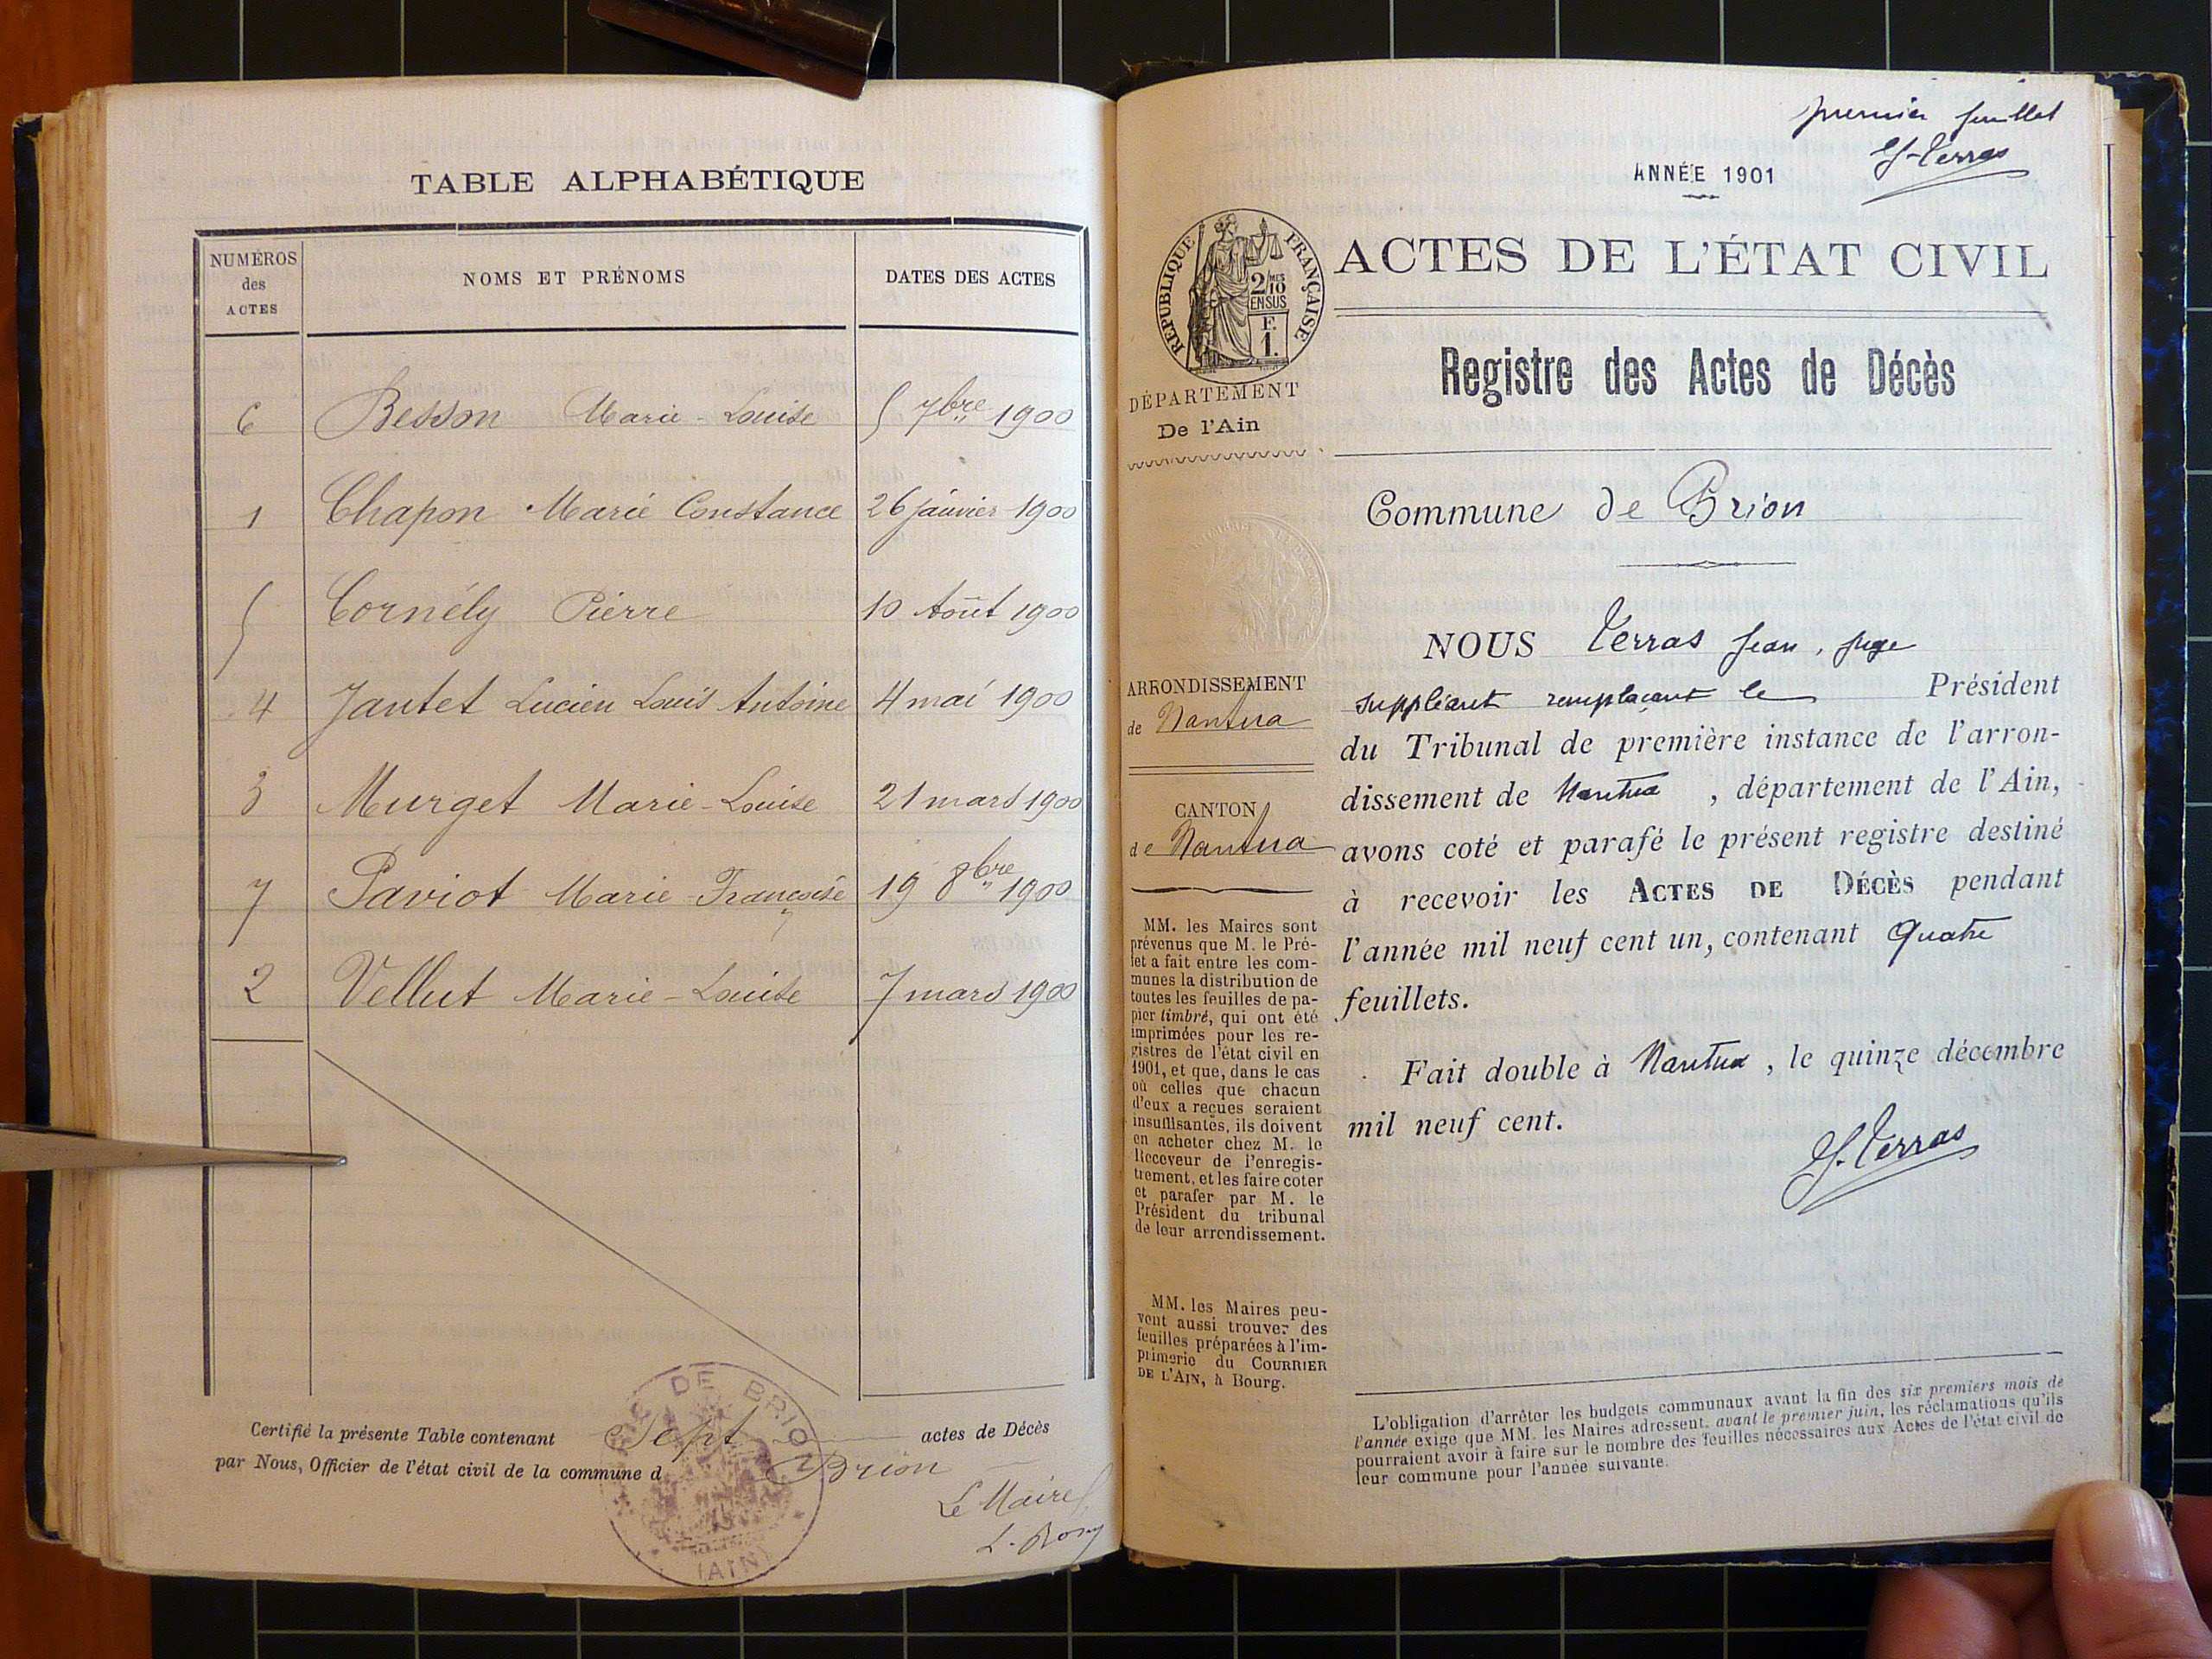 TABLE ALPHABÉTIQUE
NUMÉROS des ACTES
NOMS ET PRÉNOMS
DATES DES ACTES
6 Besson Marie-Louise 5 7bre 1900
1 Chapon Marie Constance 26 janvier 1900
5 Cornély Pierre 10 Août 1900
4 Jantet Lucien Louis Antoine 4 mai 1900
3 Murget Marie-Louise 21 mars 1900
7 Paviot Marie Françoise 19 8bre 1900
2 Vellut Marie-Louise 7 mars 1900
Certifié la présente Table contenant Sept actes de Décès
par Nous, Officier de l'état civil de la commune d Brion
Le Maire
DE BRION
(AIN)
premier feuillet
J. Terras
ANNÉE 1901
RÉPUBLIQUE FRANÇAISE
2/10 MES
EN SUS
F.
1.
ACTES DE L'ÉTAT CIVIL
Registre des Actes de Décès
DÉPARTEMENT
De l'Ain
Commune de Brion
ARRONDISSEMENT
de Nantua
CANTON
de Nantua
MM. les Maires sont
prévenus que M. le Pré-
fet a fait entre les com-
munes la distribution de
toutes les feuilles de pa-
pier timbré, qui ont été
imprimées pour les re-
gistres de l'état civil en
1901, et que, dans le cas
où celles que chacun
d'eux a reçues seraient
insuffisantes, ils doivent
en acheter chez M. le
Receveur de l'enregis-
trement, et les faire coter
et parafer par M. le
Président du tribunal
de leur arrondissement.
MM. les Maires peu-
vent aussi trouver des
feuilles préparées à l'im-
primerie du COURRIER
DE L'AIN, à Bourg.
NOUS Terras Jean, juge
suppléant remplaçant le Président
du Tribunal de première instance de l'arron-
dissement de Nantua, département de l'Ain,
avons coté et parafé le présent registre destiné
à recevoir les ACTES DE DÉCÈS pendant
l'année mil neuf cent un, contenant Quatre
feuillets.
Fait double à Nantua, le quinze décembre
mil neuf cent.
J. Terras
L'obligation d'arrêter les budgets communaux avant la fin des six premiers mois de
l'année exige que MM. les Maires adressent, avant le premier juin, les réclamations qu'ils
pourraient avoir à faire sur le nombre des feuilles nécessaires aux Actes de l'état civil de
leur commune pour l'année suivante.